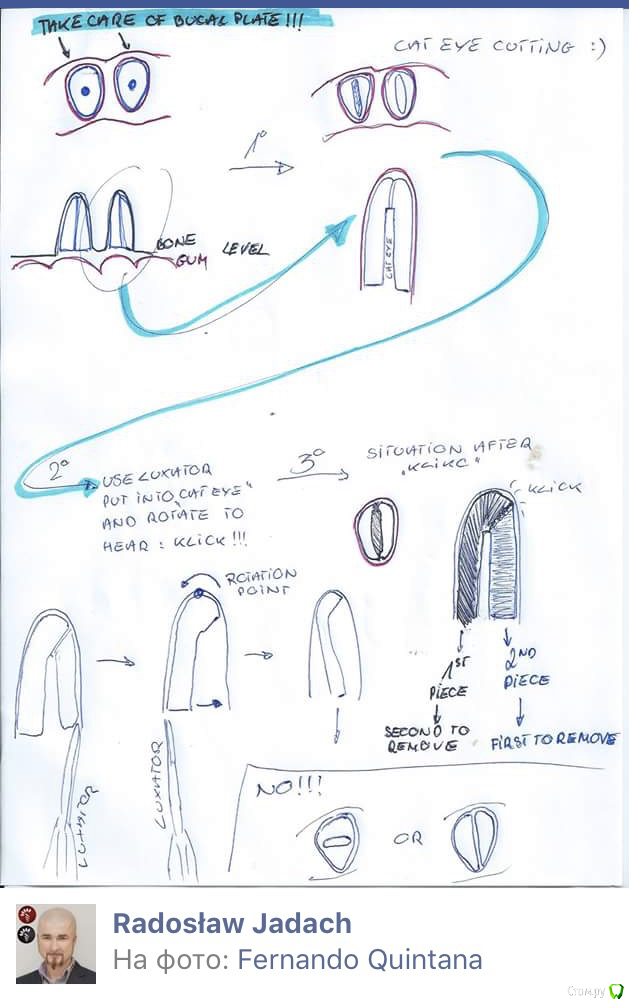 TAKE CARE OF BUCAL PLATE !!!
CAT EYE CUTTING :)
1°
BONE
GUM LEVEL
CAT EYE
2°
USE LUXATOR
PUT INTO „CAT EYE"
AND ROTATE TO
HEAR : KLICK !!!
3°
SITUATION AFTER
„KLIKC"
KLICK
ROTATION
POINT
1ST
PIECE
2ND
PIECE
SECOND TO
REMOVE
FIRST TO REMOVE
LUXATOR
LUXATOR
NO!!!
OR
Radosław Jadach
На фото: Fernando Quintana
Стом.ру